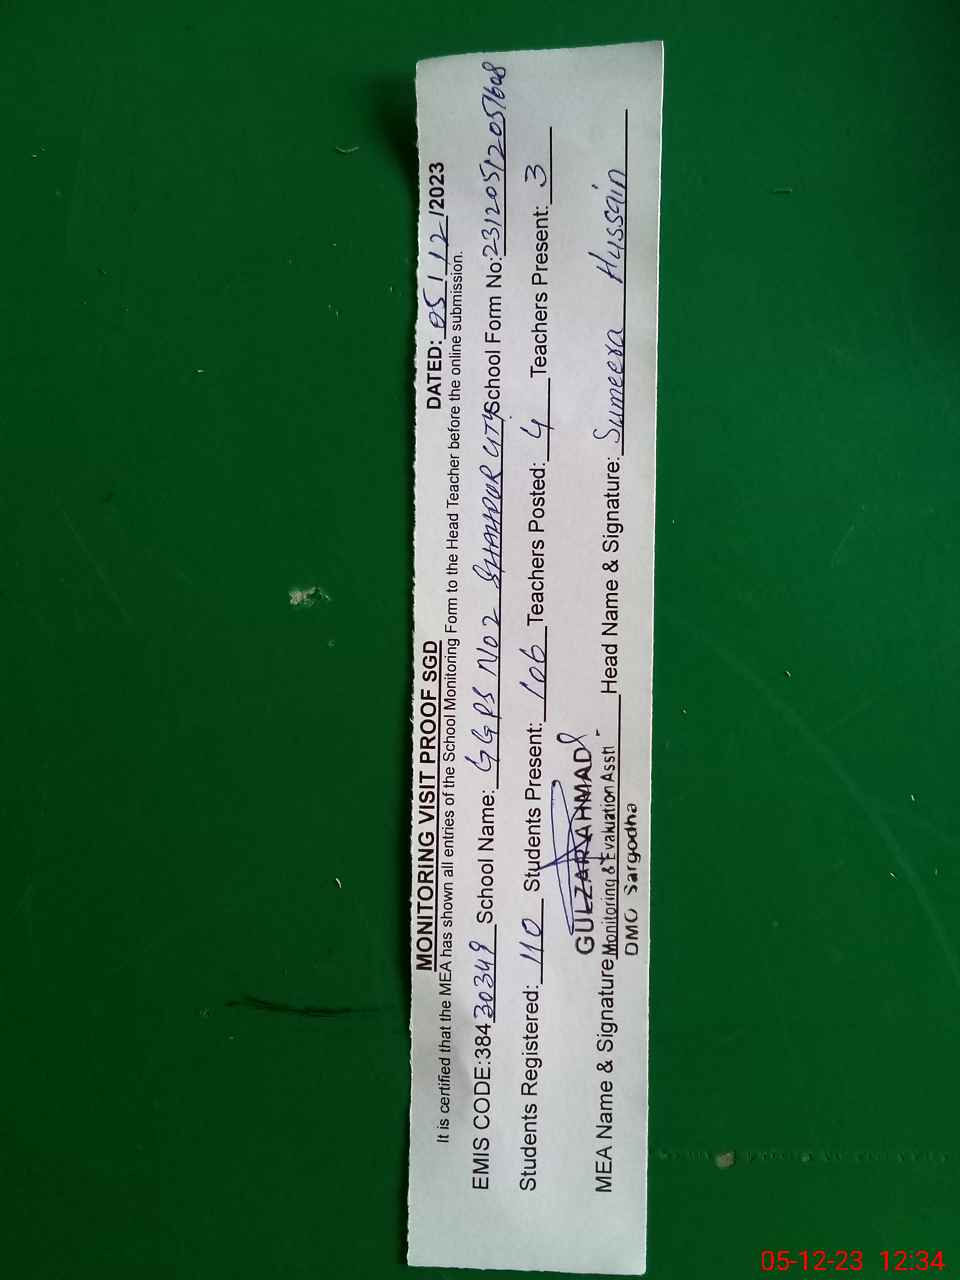 MONITORING VISIT PROOF SGD DATED: 05/12/2023
It is certified that the MEA has shown all entries of the School Monitoring Form to the Head Teacher before the online submission.
EMIS CODE:38430349 School Name: GGPS NO 2 SHAHPUR CITY School Form No: 231205120517608
Students Registered: 110 Students Present: 106 Teachers Posted: 4 Teachers Present: 3
GULZAR AHMAD
MEA Name & Signature Monitoring & Evaluation Asstt Head Name & Signature: Sumeera Hussain
DMO Sargodha
05-12-23 12:34